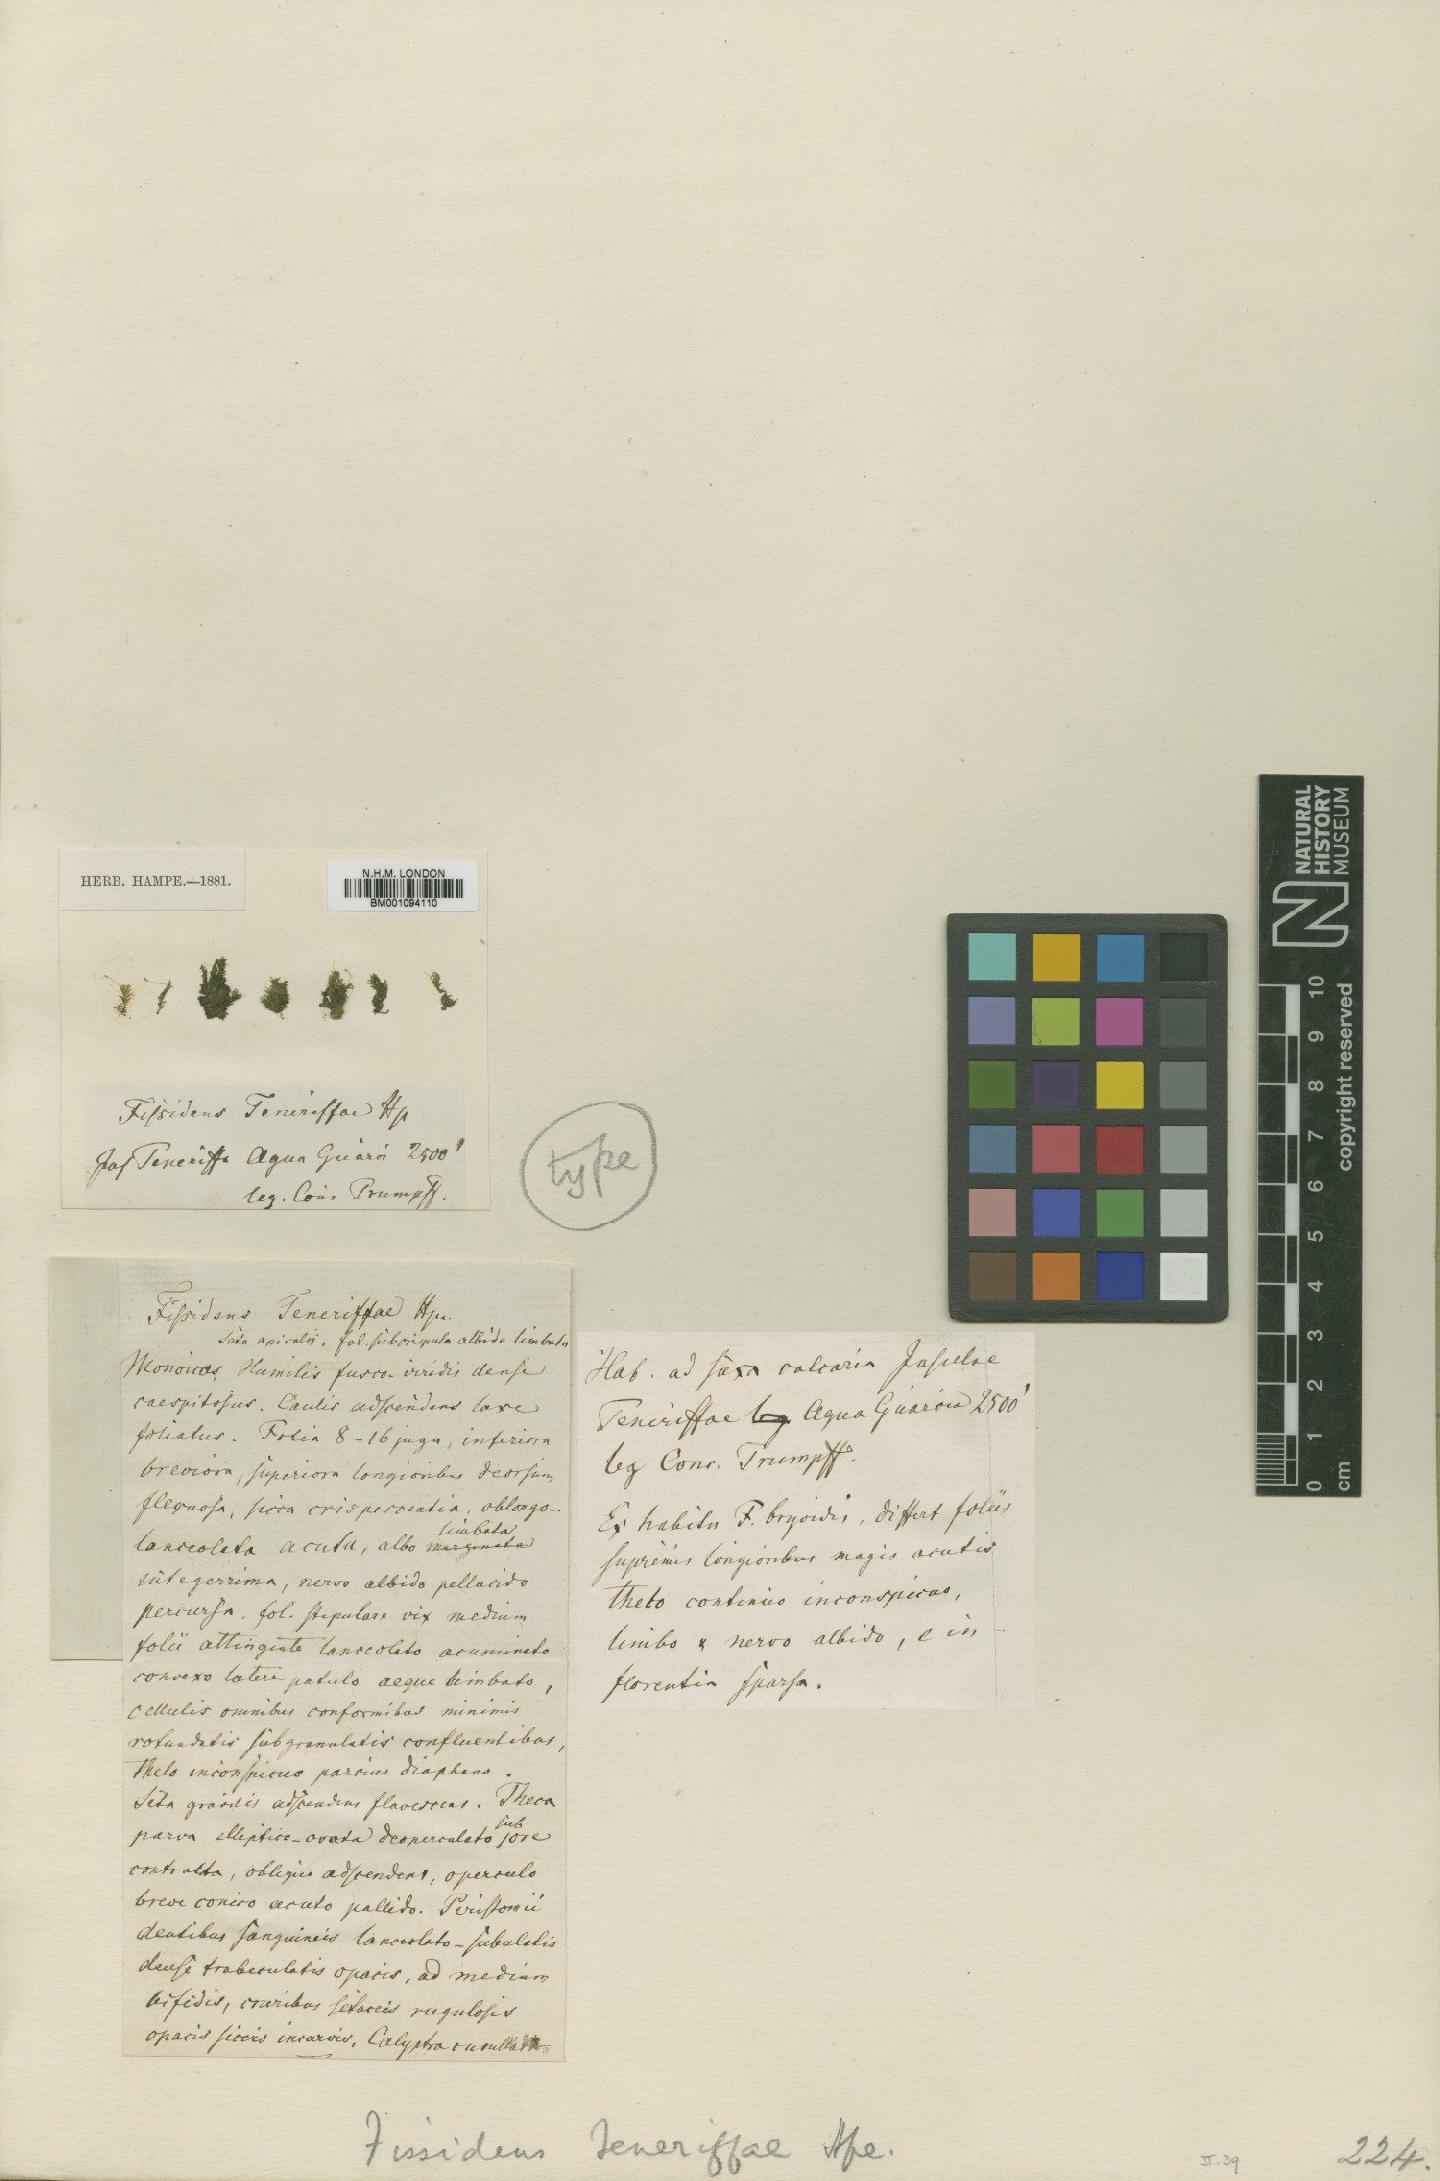 HERB. HAMPE.—1881.
N.H.M. LONDON
BM001094110
Fissidens Teneriffae Hp
Ins Teneriffa Agua Guárá 2500'
leg. Cons Trumpff.
type
Fissidens Teneriffae Hpe.
Seta apicalis. fol. subcrispula albido limbata
Monoicus, Humilis fusco-viridis dense
caespitosus. Caulis adscendens laxe
foliatus. Folia 8-16 juga, inferiora
breviora, superiora longioribus deorsum
flexuosa, sicca crispescentia, oblongo-
lanceolata acuta, albo marginata limbata
integerrima, nervo albido pellucido
percursa. fol. stipulare vix medium
folii attingente lanceolato acuminato
convexo latere patulo aeque limbato,
cellulis omnibus conformibus minimis
rotundatis subgranulatis confluentibus,
theto inconspicuo parcius diaphano.
Seta gracilis adscendens flavescens. Theca
parva elliptico-ovata deoperculato sub ore
contracta, obliquo adscendens, operculo
breve conico acuto pallido. Peristomii
dentibus sanguineis lanceolato-subulatis
dense trabeculatis opacis, ad medium
bifidis, cruribus setaceis rugulosis
opacis siccis incurvis. Calyptra
Hab. ad saxa calcaria Insulae
Teneriffae leg Agua Guároa 2500'
leg Cons. Trumpff.
Ex habitu F. bryoidis, differt foliis
supremis longioribus magis acutis
theto continuo inconspicuo,
limbo & nervo albido, e in
florentia sparsa.
NATURAL
HISTORY
MUSEUM
copyright reserved
0 1 2 3 4 5 6 7 8 9 10
cm
Fissidens Teneriffae Hpe.
II.39
224.